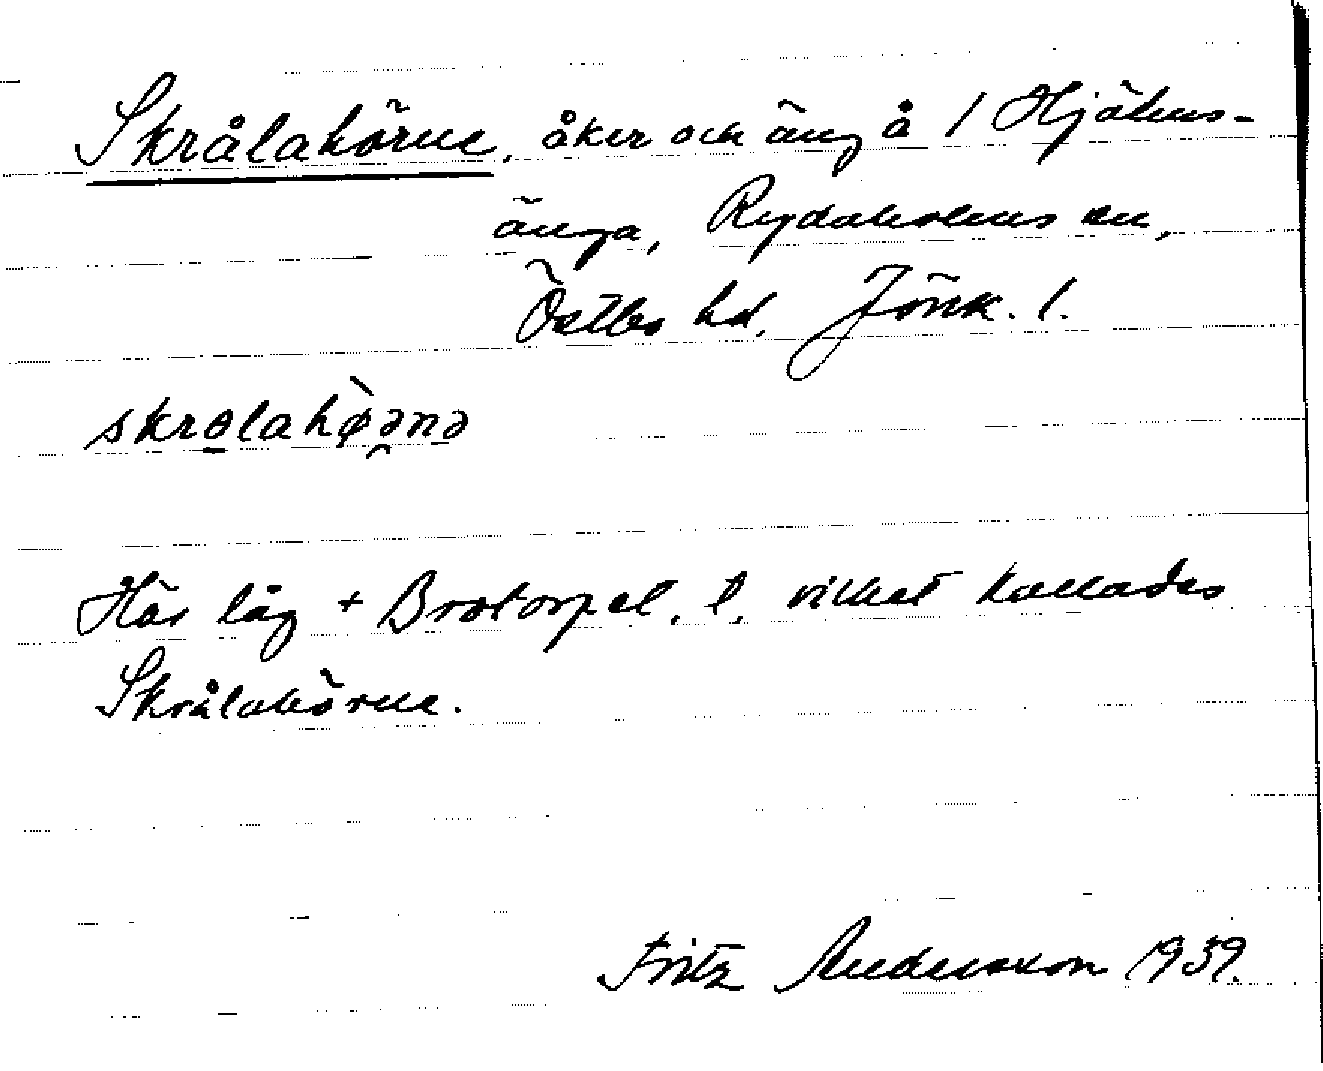 Skrålahörne, åker och äng å 1 Hjälms-
änga, Rydaholms sn,
Östbo hd, Jönk. l.
skrɵlahø̀ənə
Här låg + Brotorpet, t, vilket kallades
Skrålahörne.
Fritz Andersson 1939.